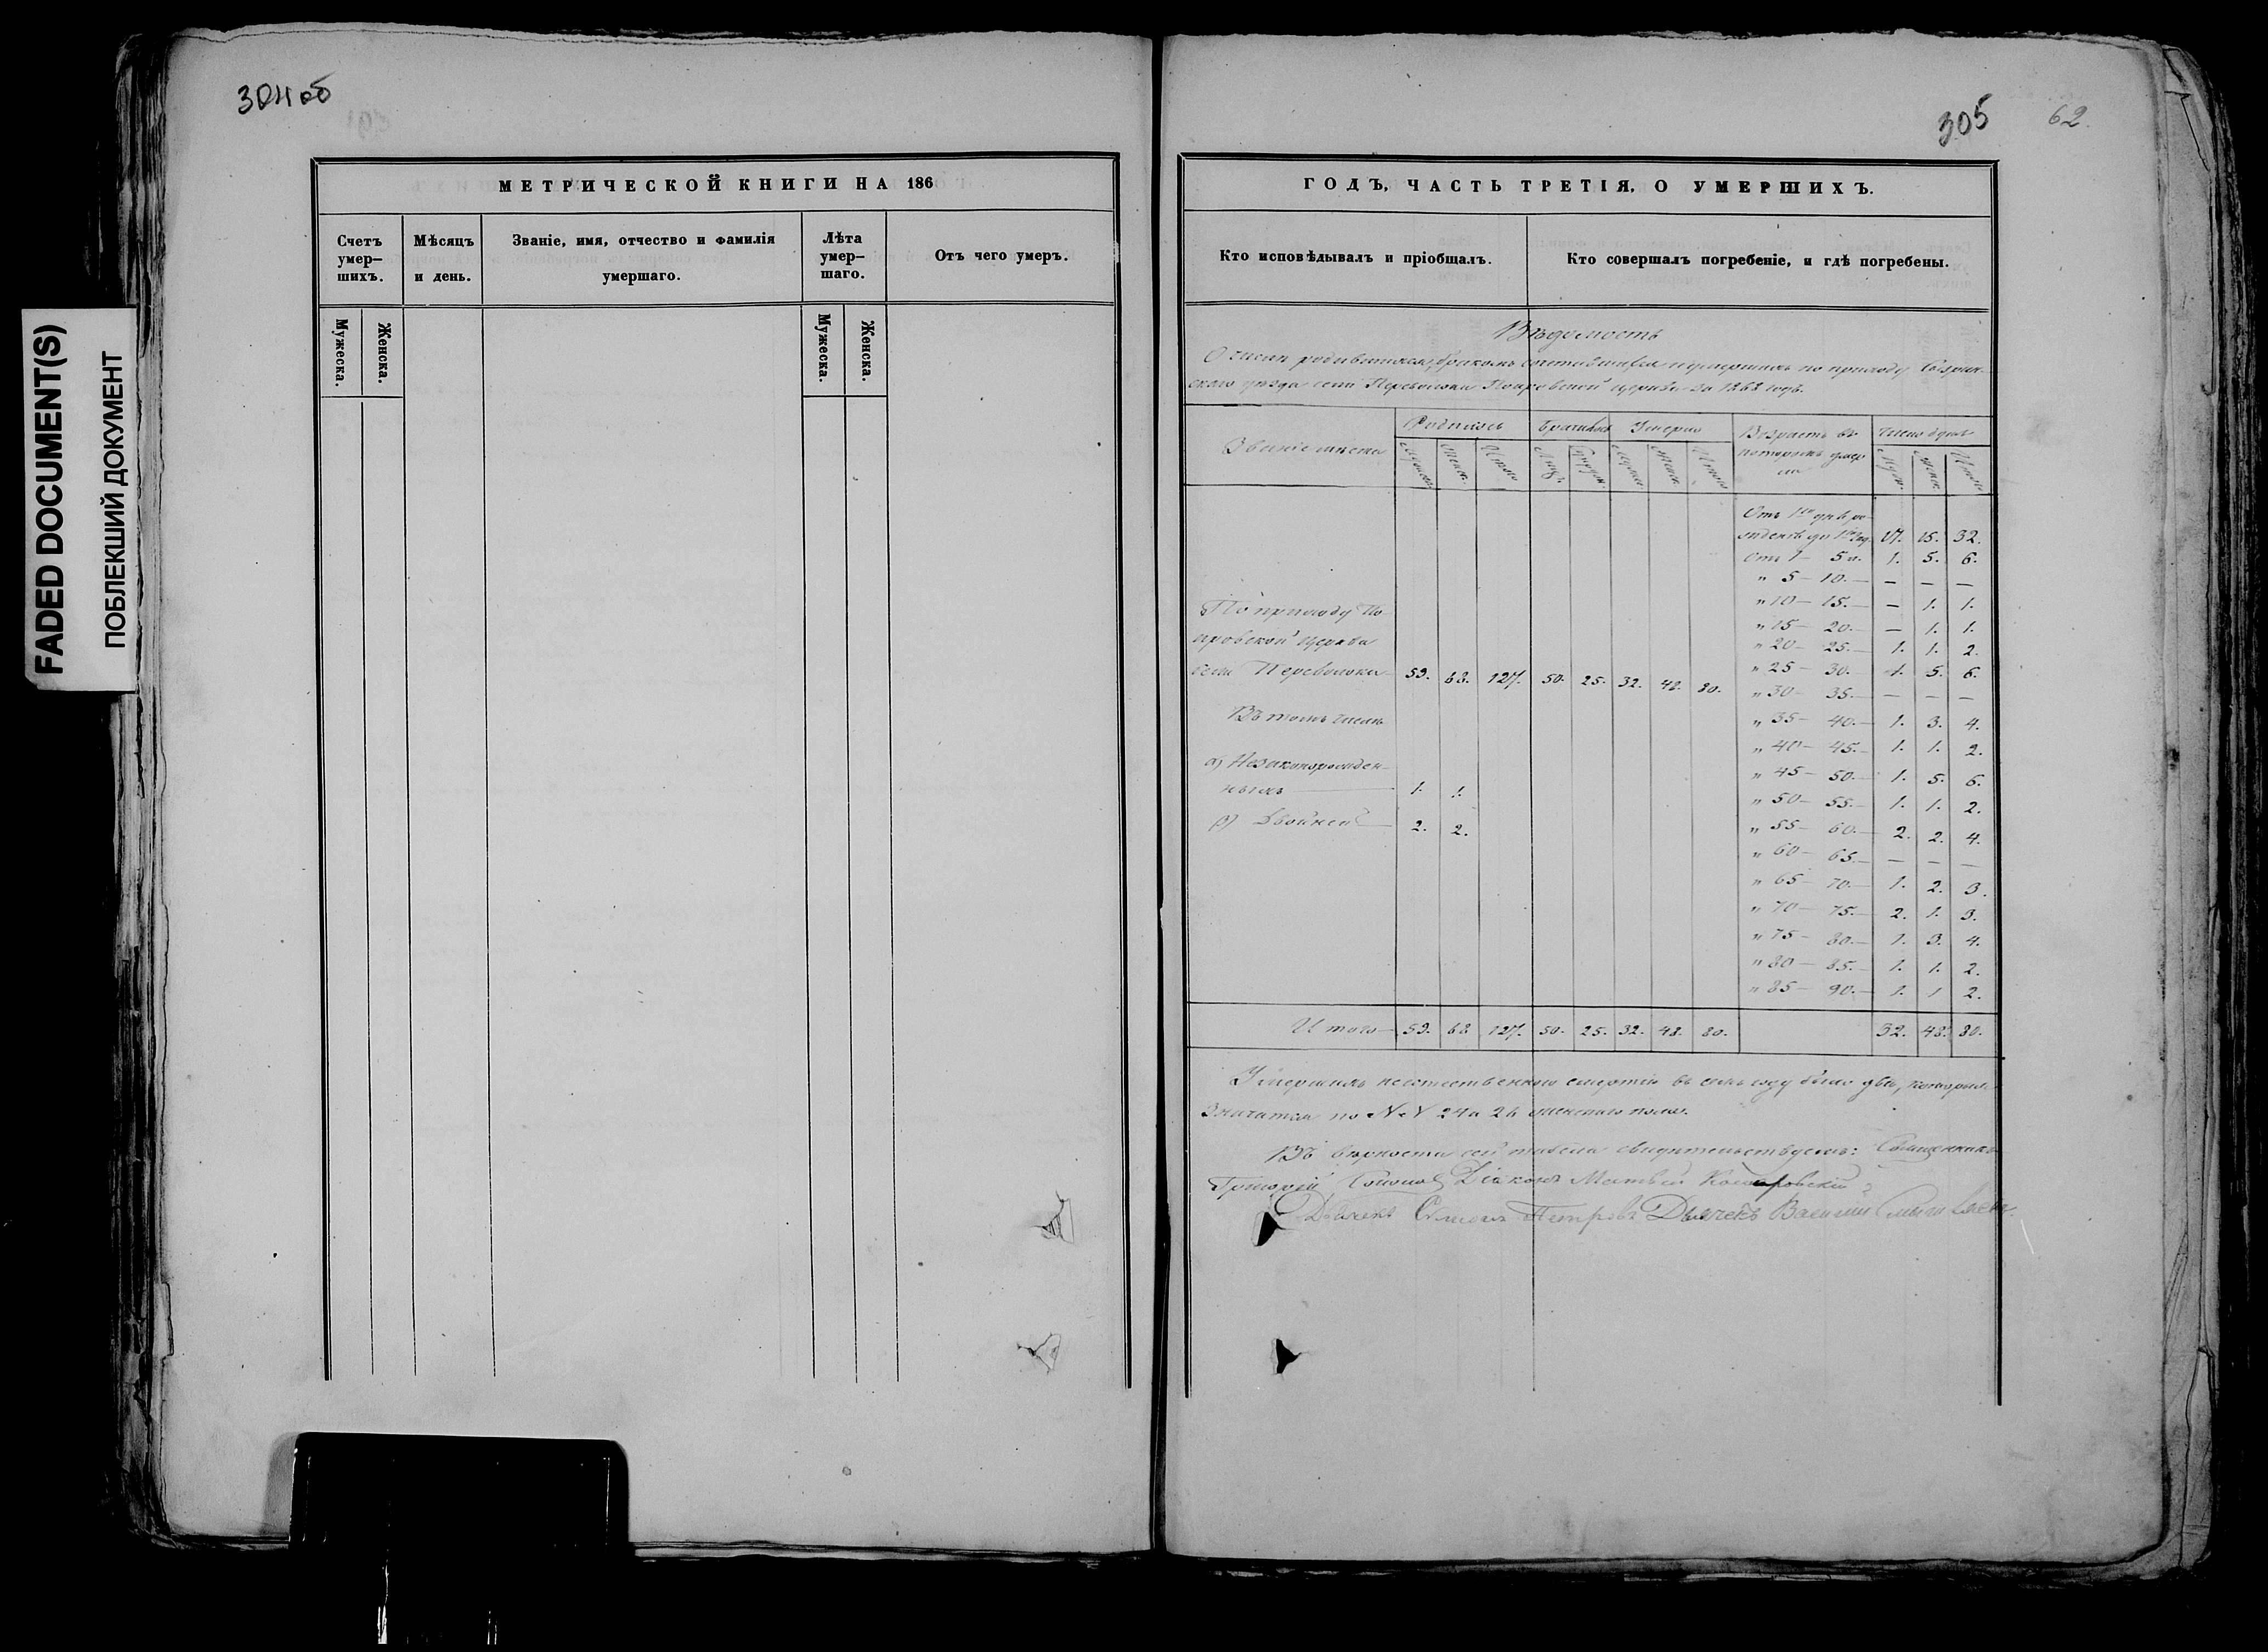 FADED DOCUMENT(S)
ПОБЛЕКШИЙ ДОКУМЕНТ
304 об
МЕТРИЧЕСКОЙ КНИГИ НА 186
Счетъ умер-
шихъ.
Мѣсяцъ
и день.
Званіе, имя, отчество и фамилія
умершаго.
Лѣта
умер-
шаго.
Отъ чего умеръ.
Мужеска.
Женска.
Мужеска.
Женска.
305
62.
ГОДЪ, ЧАСТЬ ТРЕТІЯ, О УМЕРШИХЪ.
Кто исповѣдывалъ и пріобщалъ.
Кто совершалъ погребеніе, и гдѣ погребены.
Вѣдомость
О числѣ родившихся, бракомъ сочетавшихся и умершихъ по приходу Сызран-
скаго уѣзда села Переволоки Покровской церкви за годъ.
Званіе мѣста
Родилось
Браковъ
Умерло
Возрастъ въ
которомъ умер
ли
Число душъ
Отъ 1го дня ро-
жденія до 1го год. 17. 15. 32.
Отъ 1 - 5 л. 1. 5. 6.
" 5 - 10. - - - -
" 10 - 15. - - 1. 1.
" 15 - 20. - - 1. 1.
" 20 - 25. - 1. 1. 2.
" 25 - 30. - 1. 5. 6.
" 30 - 35. - - - -
" 35 - 40. - 1. 3. 4.
" 40 - 45. - 1. 1. 2.
" 45 - 50. - 1. 5. 6.
" 50 - 55. - 1. 1. 2.
" 55 - 60. - 2. 2. 4.
" 60 - 65. - - - -
" 65 - 70. - 1. 2. 3.
" 70 - 75. - 2. 1. 3.
" 75 - 80. - 1. 3. 4.
" 80 - 85. - 1. 1. 2.
" 85 - 90. - 1. 1 2.
По приходу По
кровской церкви
села Переволоки 59. 68. 127. 50. 25. 32. 48. 80.
Въ томъ числѣ
а) Незаконорожден-
ныхъ 1. 1.
в) Двойней 2. 2.
Итого 59. 68 127. 50. 25. 32. 48. 80. 32. 48. 80.
Умершихъ неестественною смертію въ семъ году было двѣ, которыя
значатся по №№ 24 и 26 женскаго пола.
Въ вѣрности сей табели свидѣтельствуемъ: Священникъ
Григорій Діаконъ Матвей
Дьячекъ Симеонъ Петровъ Дьячекъ Василий